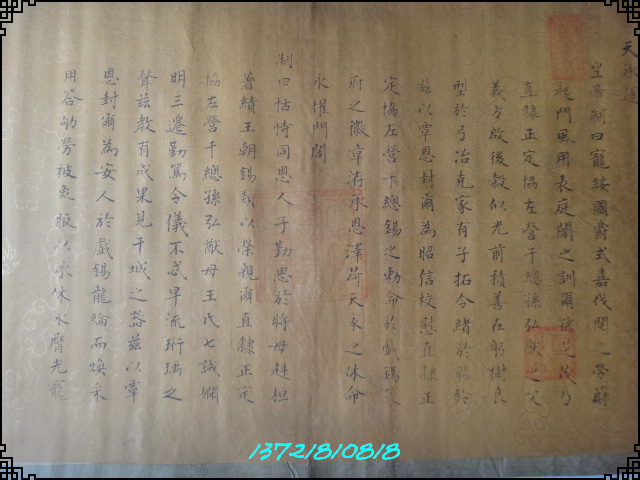 天承運
皇帝制曰寵綏國爵式嘉伐閱之勞蔚
起門風用表庭闈之訓爾孫芝茂乃
直隸正定協左營千總孫弘猷之父
義方啟後穀似光前積善在躬樹良
型於弓冶克家有子拓令緒於韜鈐
茲以覃恩封爾為昭信校尉直隸正
定協左營千總錫之勅命於戲錫
府之徽章洊承恩澤荷天家之休命
永耀門閭
制曰怙恃同恩人子勤思於將母赳桓
著績王朝錫類以榮親爾直隸正定
協左營千總孫弘猷母王氏七誡嫻
明三遷勤篤令儀不忒早流珩瑀之
聲慈教有成果見干城之器茲以覃
恩封爾為安人於戲錫龍綸而煥采
用答劬勞被象服以承休永膺光寵
13721810818